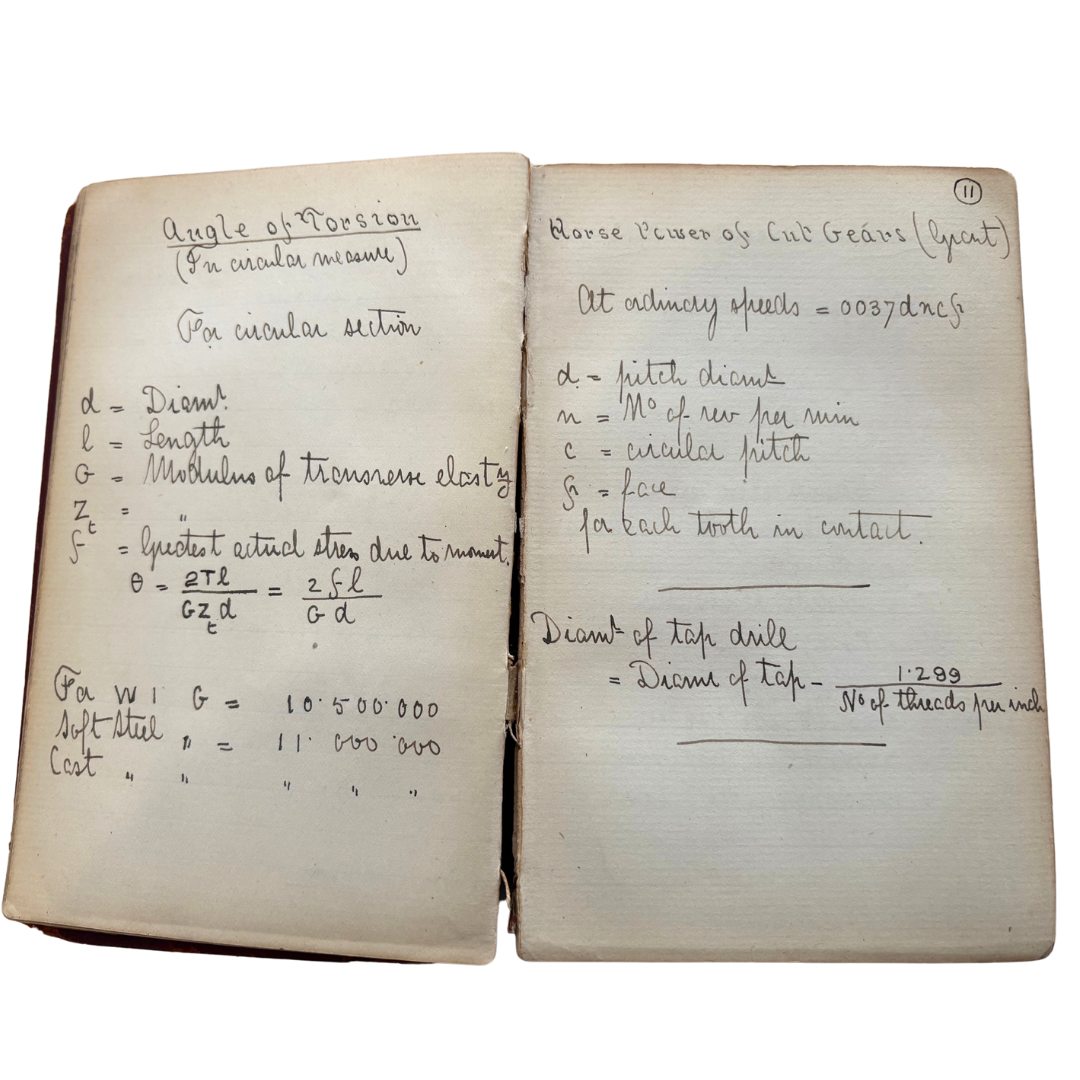 Angle of Torsion
(In circular measure)
For circular section
d = Diamt.
l = Length
G = Modulus of transverse elasty
Zt = "
f = Greatest actual stress due to moment.
θ = 2Tl / GZt d = 2fl / G d
For W I G = 10·500·000
Soft Steel " = 11·000·000
Cast " " " " "
11
Horse Power of Cut Gears (Grant)
At ordinary speeds = 0037dncf
d = pitch diamt
n = No of rev per min
c = circular pitch
f = face
for each tooth in contact.
Diamt of tap drill
= Diamt of tap - 1·299 / No of threads per inch